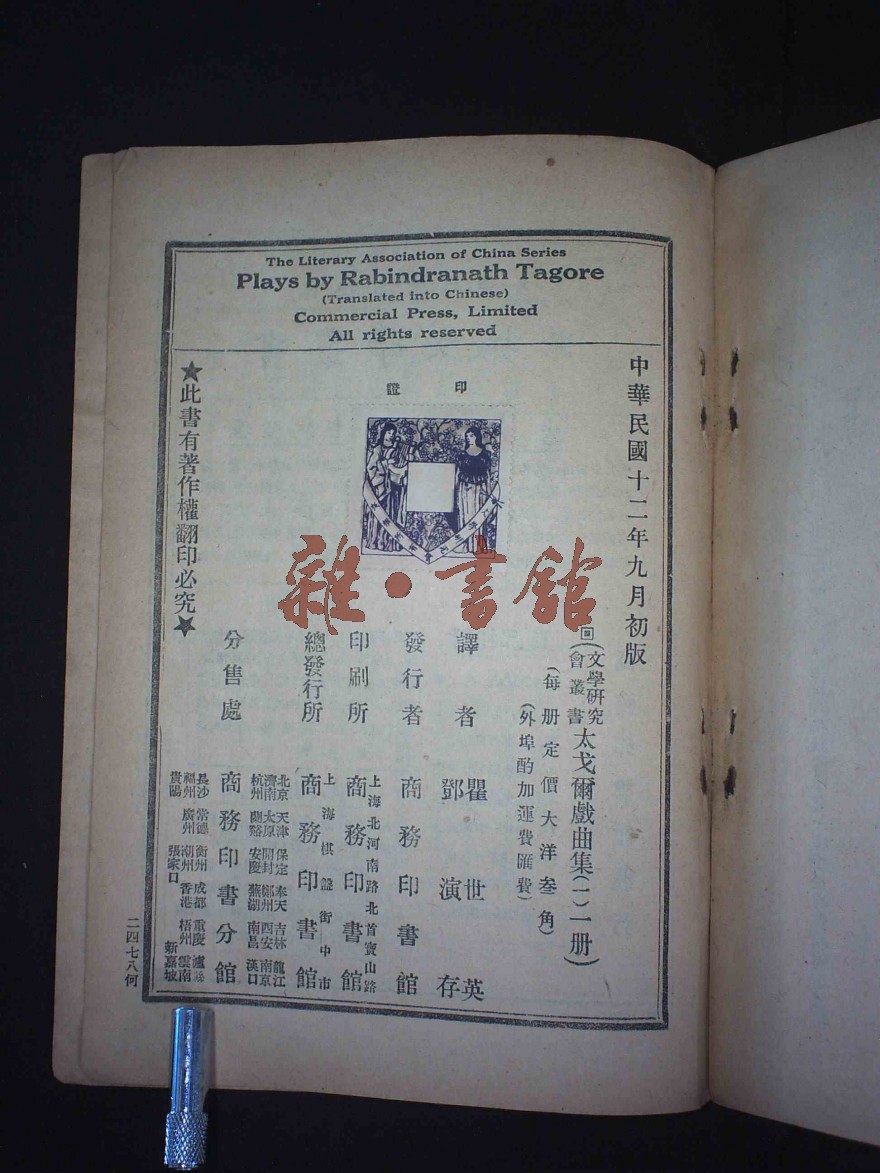 The Literary Association of China Series
Plays by Rabindranath Tagore
(Translated into Chinese)
Commercial Press, Limited
All rights reserved
中華民國十二年九月初版
回(文學研究會叢書太戈爾戲曲集(一)一册)
(每册定價大洋叁角)
(外埠酌加運費匯費)
印證
雜·書館
譯者 瞿世英 鄧演存
發行者 商務印書館
印刷所 上海北河南路北首寶山路 商務印書館
總發行所 上海棋盤街中市 商務印書館
分售處 北京 天津 保定 奉天 吉林 龍江
濟南 太原 開封 鄭州 西安 南京
杭州 蘭谿 安慶 蕪湖 南昌 漢口
商務印書分館
長沙 常德 衡州 成都 重慶 瀘
福州 廣州 潮州 香港 梧州 雲南
貴陽 張家口 新嘉坡
★此書有著作權翻印必究★
二四七八何